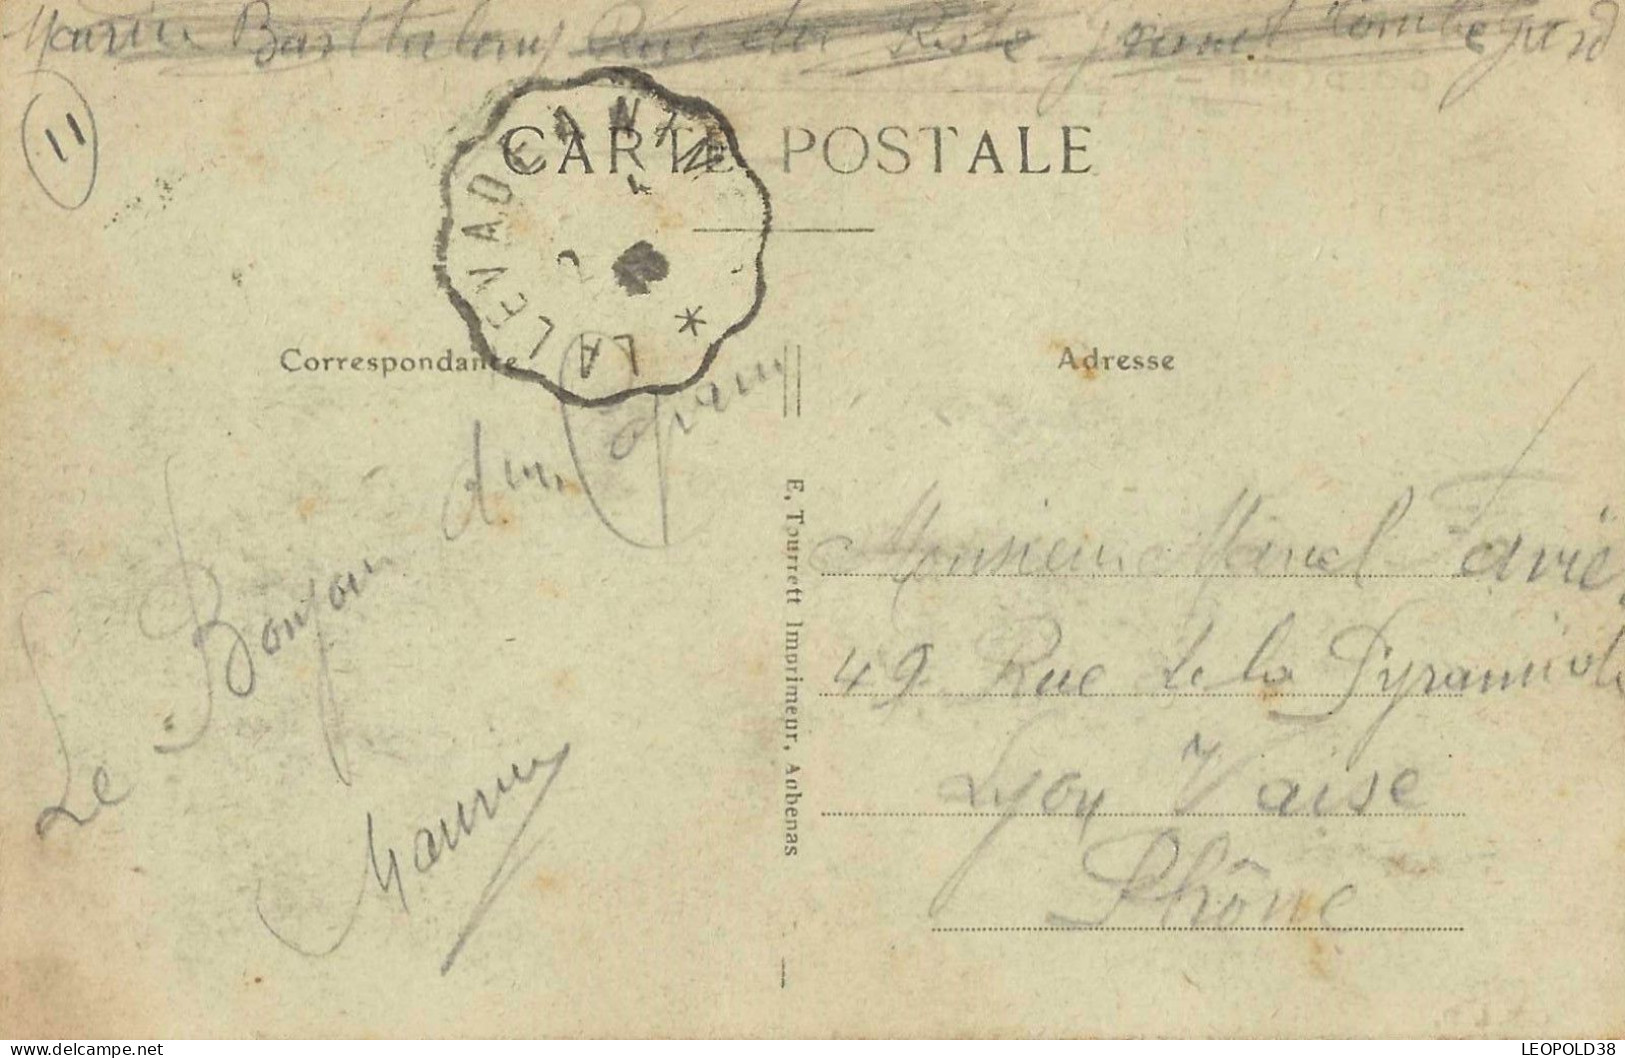 Maurin Barthelemy Rue du Grand Combe Gard
11
CARTE POSTALE
LA LEVADE
Correspondance
Adresse
Le Bonjour d'un Copain
Maurin
E. Tourrett Imprimeur, Aubenas
Monsieur Marcel Favie
49 Rue de la Pyramide
Lyon Vaise
Rhône
delcampe.net
LEOPOLD38